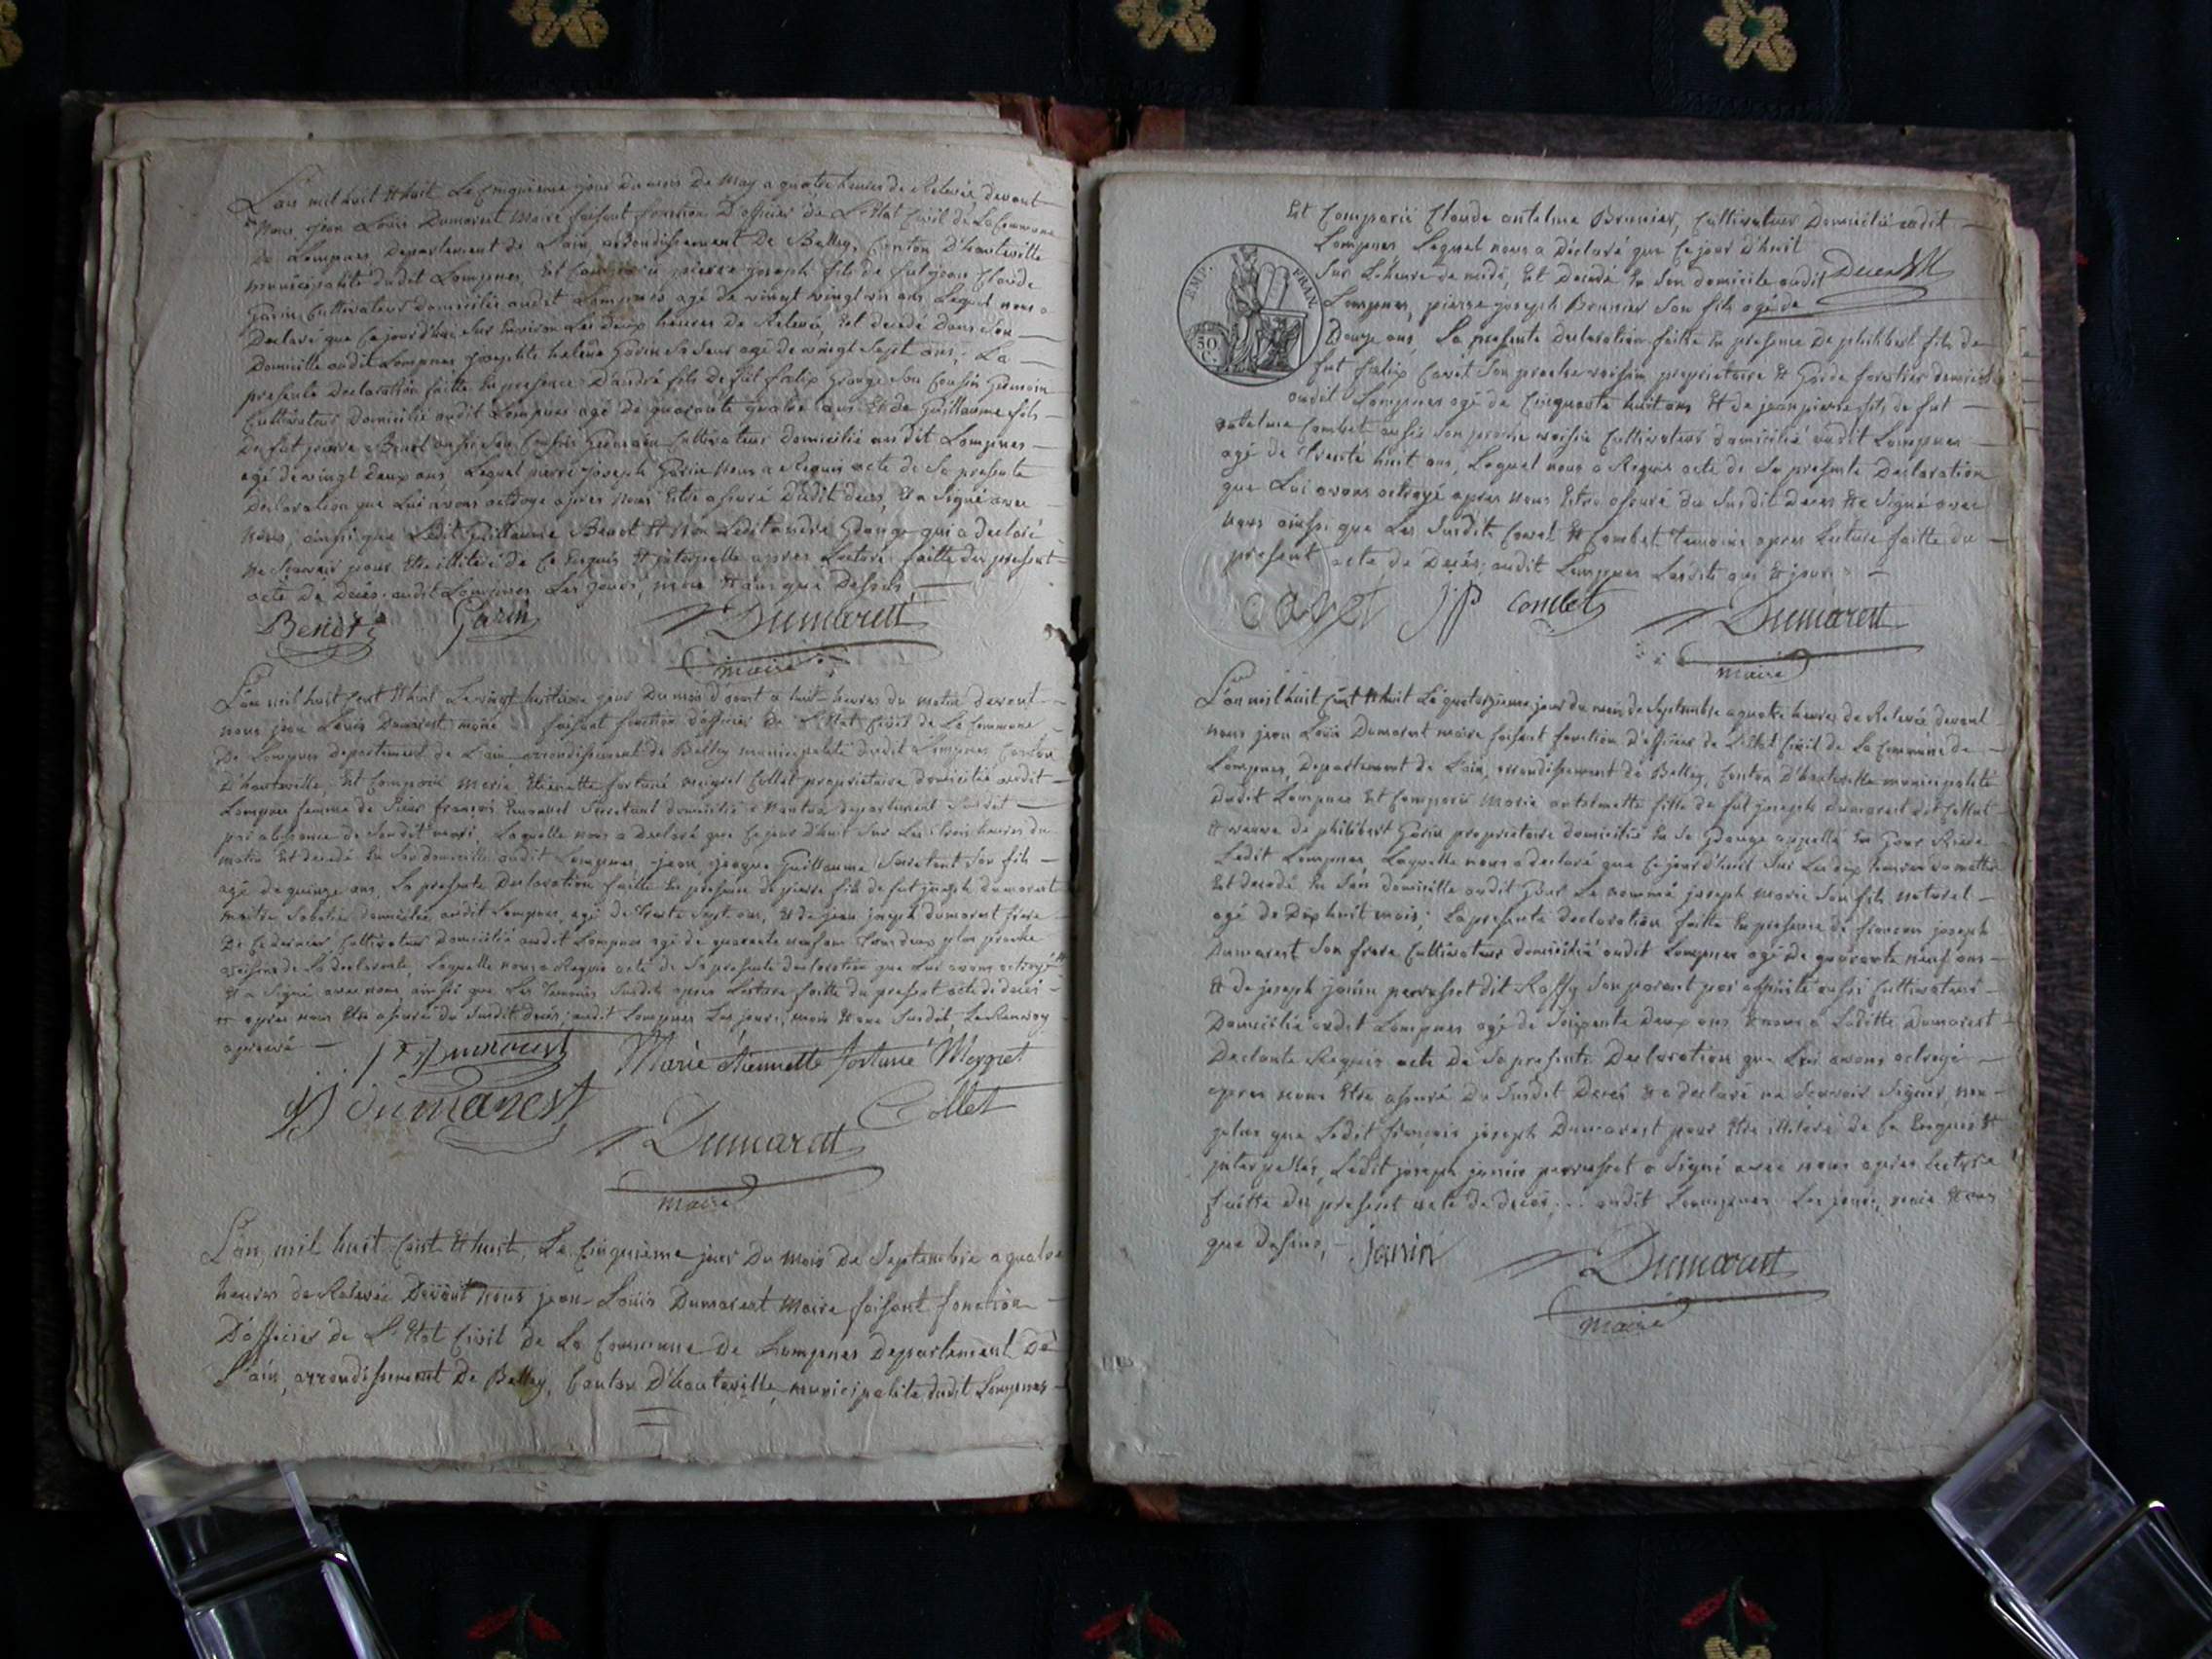 L'an mil huit et huit Le Cinquieme jour du mois De May a quatre heures de Relevée, devant
Nous jean Louis Dumarest Maire faisant fonction D'officier de L'Etat Civil de La Commune
De Lompnes Departement de L'ain arrondissement De Belley, Canton D'hauteville
municipalité dudit Lompnes, Est Comparu pierre joseph fils de fut jean Claude
Garin Cultivateur domicilié audit Lompnes agé de vingt ans Lequel nous a
Declaré que Cejourd'hui Sur Environ Les deux heures de Relevé, Est decedé Dans Son
Domicille audit Lompnes helene Garin Sa Seur agé de vingt Sept ans, La
presente Declaration faitte En presence D'andré fils De fut felix Grange Son Coussin Germain
Cultivateur Domicilié audit Lompnes agé de quarante quatre ans Et de Guillaume fils
De fut pierre Benot aussi Son Coussin Germain Cultivateur domicilié audit Lompnes
agé de vingt Deux ans Lequel pierre Joseph Garin Nous a Requis acte de Sa presente
Declaration que Lui avons octroyé apres nous Estre assuré Dudit deces, Et a Signé avec
Nous, ainsi que Ledit Guillaume Benot Et Non Ledit andré Grange qui a declaré
ne Scavoir pour Etre illiteré de Ce Enquis Et interpellé apres Lecture faitte du present
acte de Decés audit Lompnes Les jours, mois Et ans que Dessus,
Benot Garin Dumarest
maire
L'an mil huit Cent Et huit Le vingt huitieme jour Du mois d'aout a huit heures du matin devant
nous jean Louis Dumarest maire faisant fonction d'officier de L'Etat Civil de La Commune
De Lompnes departement de L'ain arrondissement de Belley municipalité dudit Lompnes Canton
D'hauteville, Est Comparu Marie Etiennette fortuné Meygret Collet propriétaire domicilié audit
Lompnes femme de Sieur françois Emanuel domicilié a Nantua departement Susdit
par absence de Son dit mari, Laquelle nous a Declaré que Cejour d'huit Sur Les trois heures du
matin Est decedé En Son domicille audit Lompnes, jean jacque Guillaume Son fils
agé de quinze ans, La presente Declaration faitte En presence de pierre fils de fut joseph dumarest
maitre Sabotier domicilié audit Lompnes, agé de trente Sept ans, Et de jean joseph dumarest frere
De Ce dernier Cultivateur domicilié audit Lompnes agé de quarante neuf ans tous deux plus proche
voisins de La declarante, Laquelle nous a Requis acte de Sa presente declaration que Lui avons octroyé
Et a Signé avec nous ainsi que Les Temoins Susdits apres Lecture faitte du present acte de decés
apres nous Etre assuré du Susdit decés, audit Lompnes Les jours, mois Et ans Susdit Le Renvoy
aprouvé
P Dumarest Marie étiennette fortuné Meygret
JJ Dumarest Collet
Dumarest
maire
L'an, mil huit Cent Et huit, Le Cinquieme jour Du Mois De Septembre a quatre
heures de Relevée Devant Nous jean Louis Dumarest Maire faisant fonction
D'officier de L'Etat Civil de La Commune De Lompnes Departement De
L'ain, arrondissement De Belley, Canton D'hauteville, municipalité dudit Lompnes
Est Comparu Claude antelme Brunier, Cultivateur Domicilié audit
Lompnes Lequel nous a Déclaré que Ce jour d'huit
EMP. FRAN.
50 C.
Sur L'heure de midi, Est Decedé En Son domicile audit
Lompnes, pierre joseph Brunier Son fils agé de
Douze ans, La presente Declaration faitte En presence De philibert fils de
fut felix Cavet Son proche voisin proprietaire Et Garde forestier domicilié
audit Lompnes agé de Cinquante huit ans Et de jean pierre fils de fut
antelme Combet aussi Son proche voisin Cultivateur domicilié audit Lompnes
agé de Trente huit ans, Lequel nous a Requis acte de Sa presente Declaration
que Lui avons octroyé apres nous Estre assuré du Susdit Deces Et a Signé avec
nous ainsi que Les Susdits Cavet Et Combet Temoins apres Lecture faitte du
present acte de Decés, audit Lompnes Lesdits ans Et jour
Cavet JP Combet Dumarest
maire
L'an mil huit Cent Et huit Le quatorzieme jour du mois de Septembre a quatre heures de Relevée devant
nous jean Louis Dumarest maire faisant fonction d'officier de L'Etat Civil de La Commune de
Lompnes, Departement de L'ain, arrondissement de Belley, Canton D'hauteville municipalité
Dudit Lompnes Est Comparu Marie antelmette fille de fut joseph dumarest dit
Et veuve de philibert Garin proprietaire domicilié En Sa Grange appellé En
Ledit Lompnes, Laquelle nous a declaré que Cejourd'huit Sur Les heures du matin
Est decedé En Son domicille audit Le nommé joseph marie Son fils naturel
agé de Dix huit mois, La presente declaration faitte En presence de francois joseph
Dumarest Son frere Cultivateur domicilié audit Lompnes agé de quarante neuf ans
Et de joseph janin perrusset dit Son parent par affinité aussi Cultivateur
Domicilié audit Lompnes agé de Soixante Deux ans Et nous a Laditte Dumarest
Declante Requis acte De Sa presente Declaration que Lui avons octroyé
apres nous Etre assuré Du Susdit Decés Et a declaré ne Scavoir Signer, non
plus que Ledit françois joseph Dumarest pour Etre illiteré de Ce Enquis Et
interpellés, Ledit joseph janin perrusset a Signé avec nous apres Lecture
faitte du present acte de decés... audit Lompnes Les jours, mois Et ans
que dessus, Janin Dumarest
maire